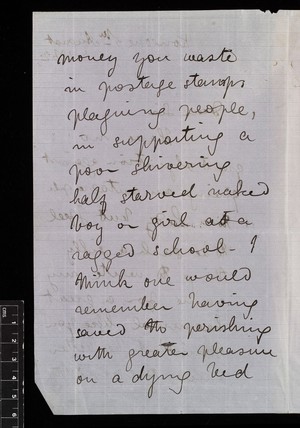 money you waste
in postage stamps
plaguing people,
in supporting a
poor shivering
half starved naked
boy or girl at a
ragged school - I
think one would
remember having
saved the perishing
with greater pleasure
on a dying bed